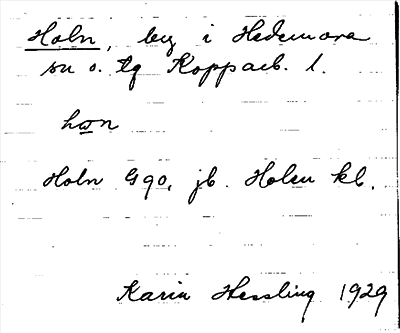 Holn, by i Hedemora
sn o. tg Kopparb. l.
hɷn
Holn G90, jb. Holen kb.
Karin Hessling 1929